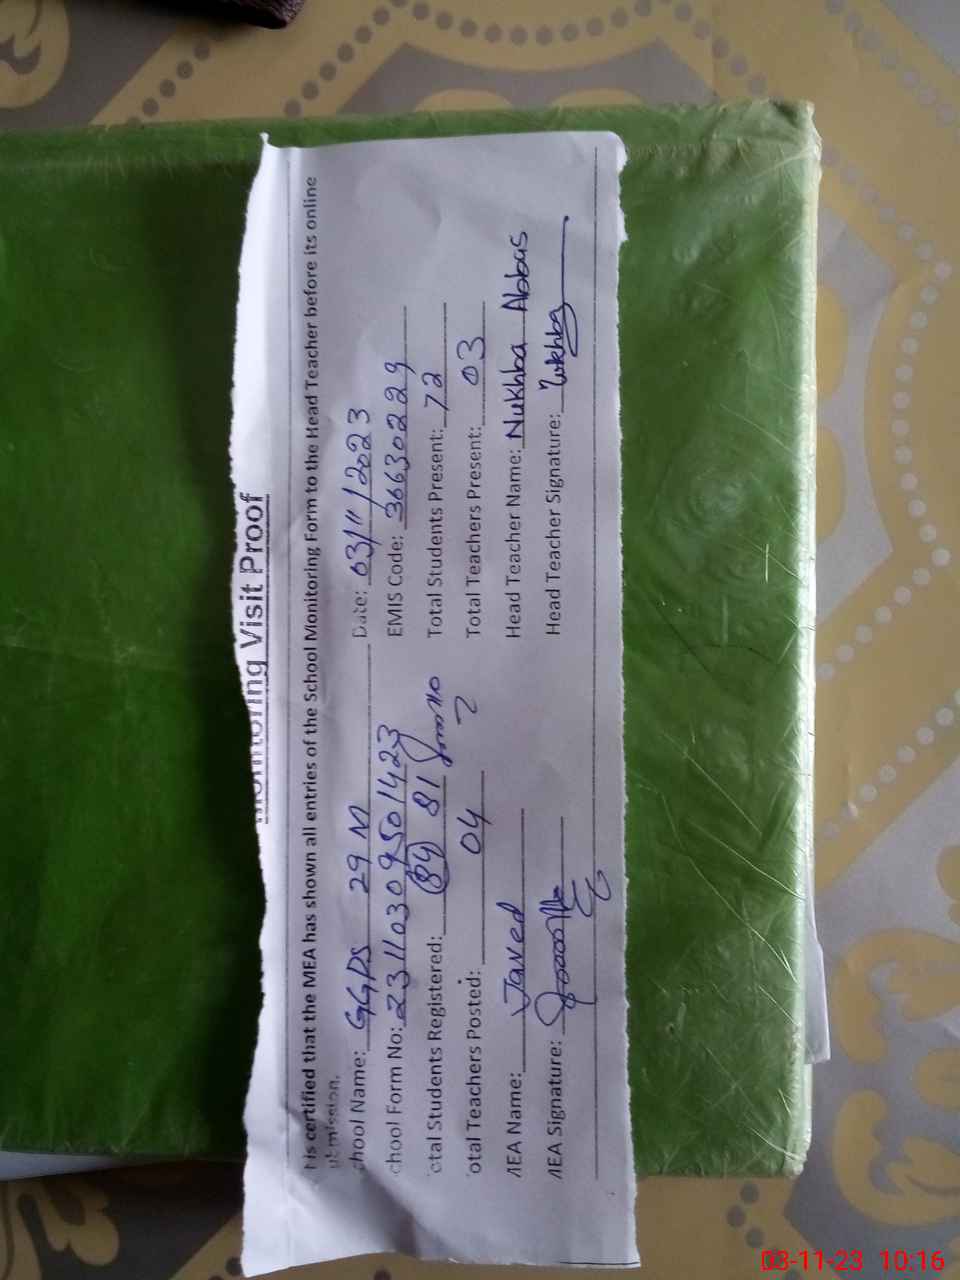 Monitoring Visit Proof
is certified that the MEA has shown all entries of the School Monitoring Form to the Head Teacher before its online
ubmission.
chool Name: GGPS 29 M Date: 03/11/2023
chool Form No: 23110309501423 EMIS Code: 36630229
otal Students Registered: (84) 81 Total Students Present: 72
otal Teachers Posted: 04 Total Teachers Present: 03
MEA Name: Javed Head Teacher Name: Nukhba Abbas
MEA Signature: Head Teacher Signature: Nukhba
03-11-23 10:16